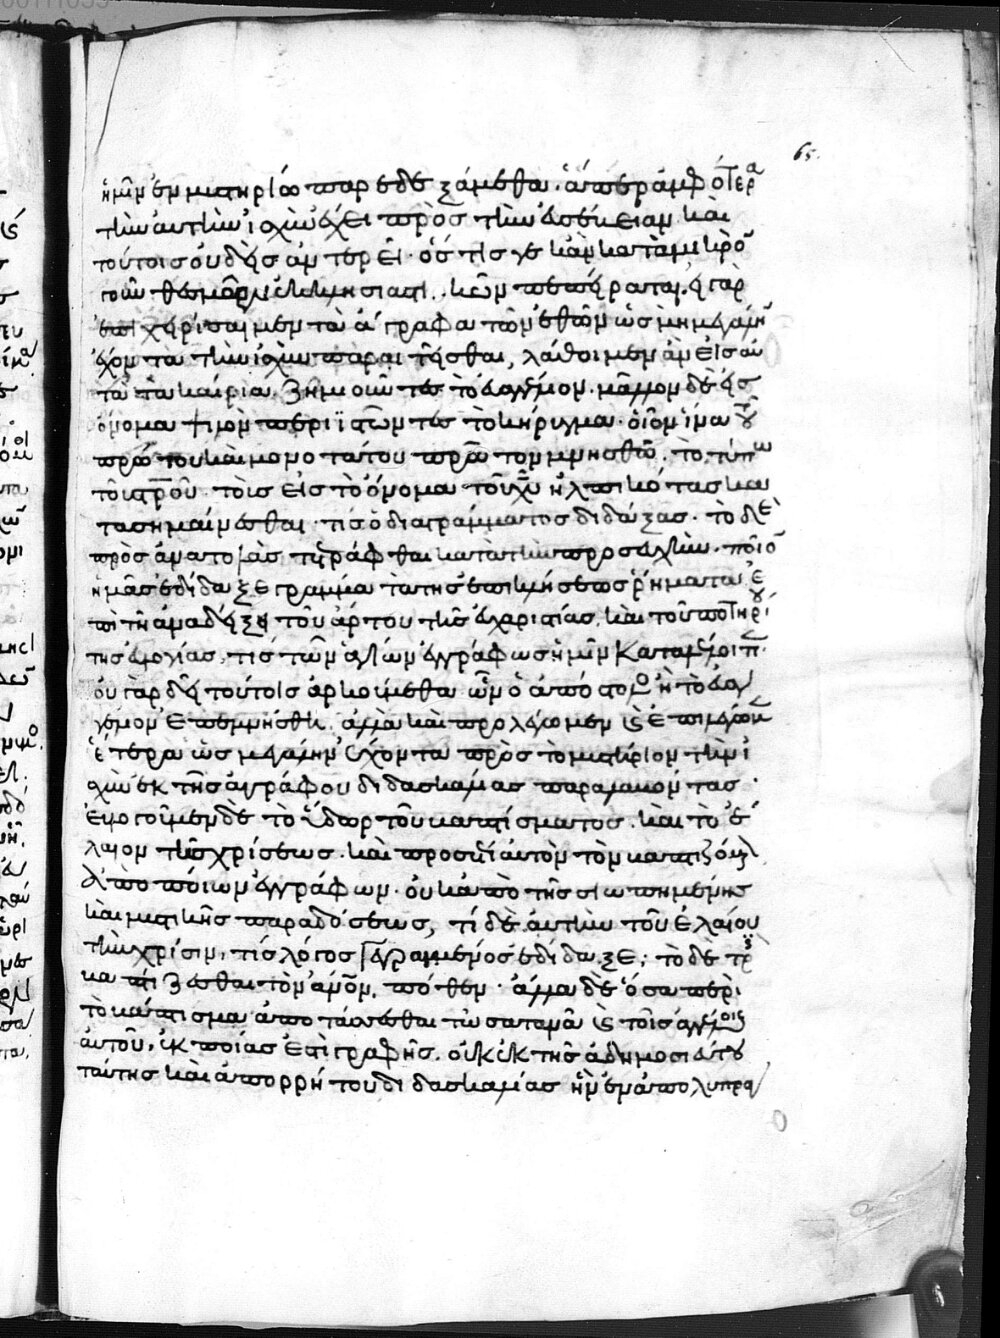 65.
ἡμῖν ἐν μυστηρίω παρεδεξάμεθα· ἅπερ ἀμφότερα
τὴν αὐτὴν ἰσχὺν ἔχει πρὸς τὴν εὐσέβειαν καὶ
τούτοις οὐδεὶς ἀντερεῖ· ὅστίς γε κἂν κατὰ μικρὸν
γοῦν θεσμῶν ἐκκλησιαστικῶν πεπείραται. εἰ γὰρ
ἐπιχειρήσαιμεν τὰ ἄγραφα τῶν ἐθῶν ὡς μὴ μεγάλην
ἔχοντα τὴν ἰσχὺν παραιτεῖσθαι, λάθοιμεν ἂν εἰς αὐ
τὰ τὰ καίρια ζημιοῦντες τὸ εὐαγγέλιον. μᾶλλον δὲ εἰς
ὄνομα ψιλὸν περιϊστῶντες τὸ κήρυγμα· οἷον ἵνα τοῦ
πρώτου καὶ κοινοτάτου πρῶτον μνησθῶ. τῶ τύπω
τοῦ σταυροῦ· τοὺς εἰς τὸ ὄνομα τοῦ χυ ἠλπικότας κα
τασημαίνεσθαι· τίς ὁ διὰ γράμματος διδάξας· τὸ δὲ
πρὸς ἀνατολὰς τετράφθαι κατὰ τὴν προσευχὴν· ποῖον
ἡμᾶς ἐδίδαξε γράμμα τὰ τῆς ἐπικλήσεως ῥήματα ἐ
πὶ τῇ ἀναδείξει τοῦ ἄρτου τῆς εὐχαριστίας, καὶ τοῦ ποτηρίου
τῆς εὐλογίας, τίς τῶν ἁγίων ἐγγράφως ἡμῖν καταλέλοιπεν·
οὐ γὰρ δὴ τούτοις ἀρκούμεθα ὧν ὁ ἀπόστολος ἢ τὸ εὐαγ
γέλιον ἐπεμνήσθη. ἀλλὰ καὶ προλέγομεν καὶ ἐπιλέγομεν
ἕτερα ὡς μεγάλην ἔχοντα πρὸς τὸ μυστήριον τὴν ἰ
σχὺν ἐκ τῆς ἀγράφου διδασκαλίας παραλαβόντες·
εὐλογοῦμεν δὲ τὸ ὕδωρ τοῦ βαπτίσματος. καὶ τὸ ἔ
λαιον τῆς χρίσεως. καὶ προσέτι αὐτὸν τὸν βαπτιζόμενον
ἀπὸ ποίων ἐγγράφων· οὐκ ἀπὸ τῆς σιωπημένης
καὶ μυστικῆς παραδόσεως, τί δὲ αὐτὴν τοῦ ἐλαίου
τὴν χρίσιν, τίς λόγος γεγραμμένος ἐδίδαξε; τὸ δὲ τρὶς
βαπτίζεσθαι τὸν ἄνθρωπον, πόθεν· ἄλλα δὲ ὅσα περὶ
τὸ βάπτισμα ἀποτάσσεσθαι τῶ σατανᾶ καὶ τοῖς ἀγγέλοις
αὐτοῦ, ἐκ ποίας ἐστὶ γραφῆς. οὐκ ἐκ τῆς ἀδημοσιεύτου
ταύτης καὶ ἀπορρήτου διδασκαλίας ἣν ἐν ἀπολυπρα